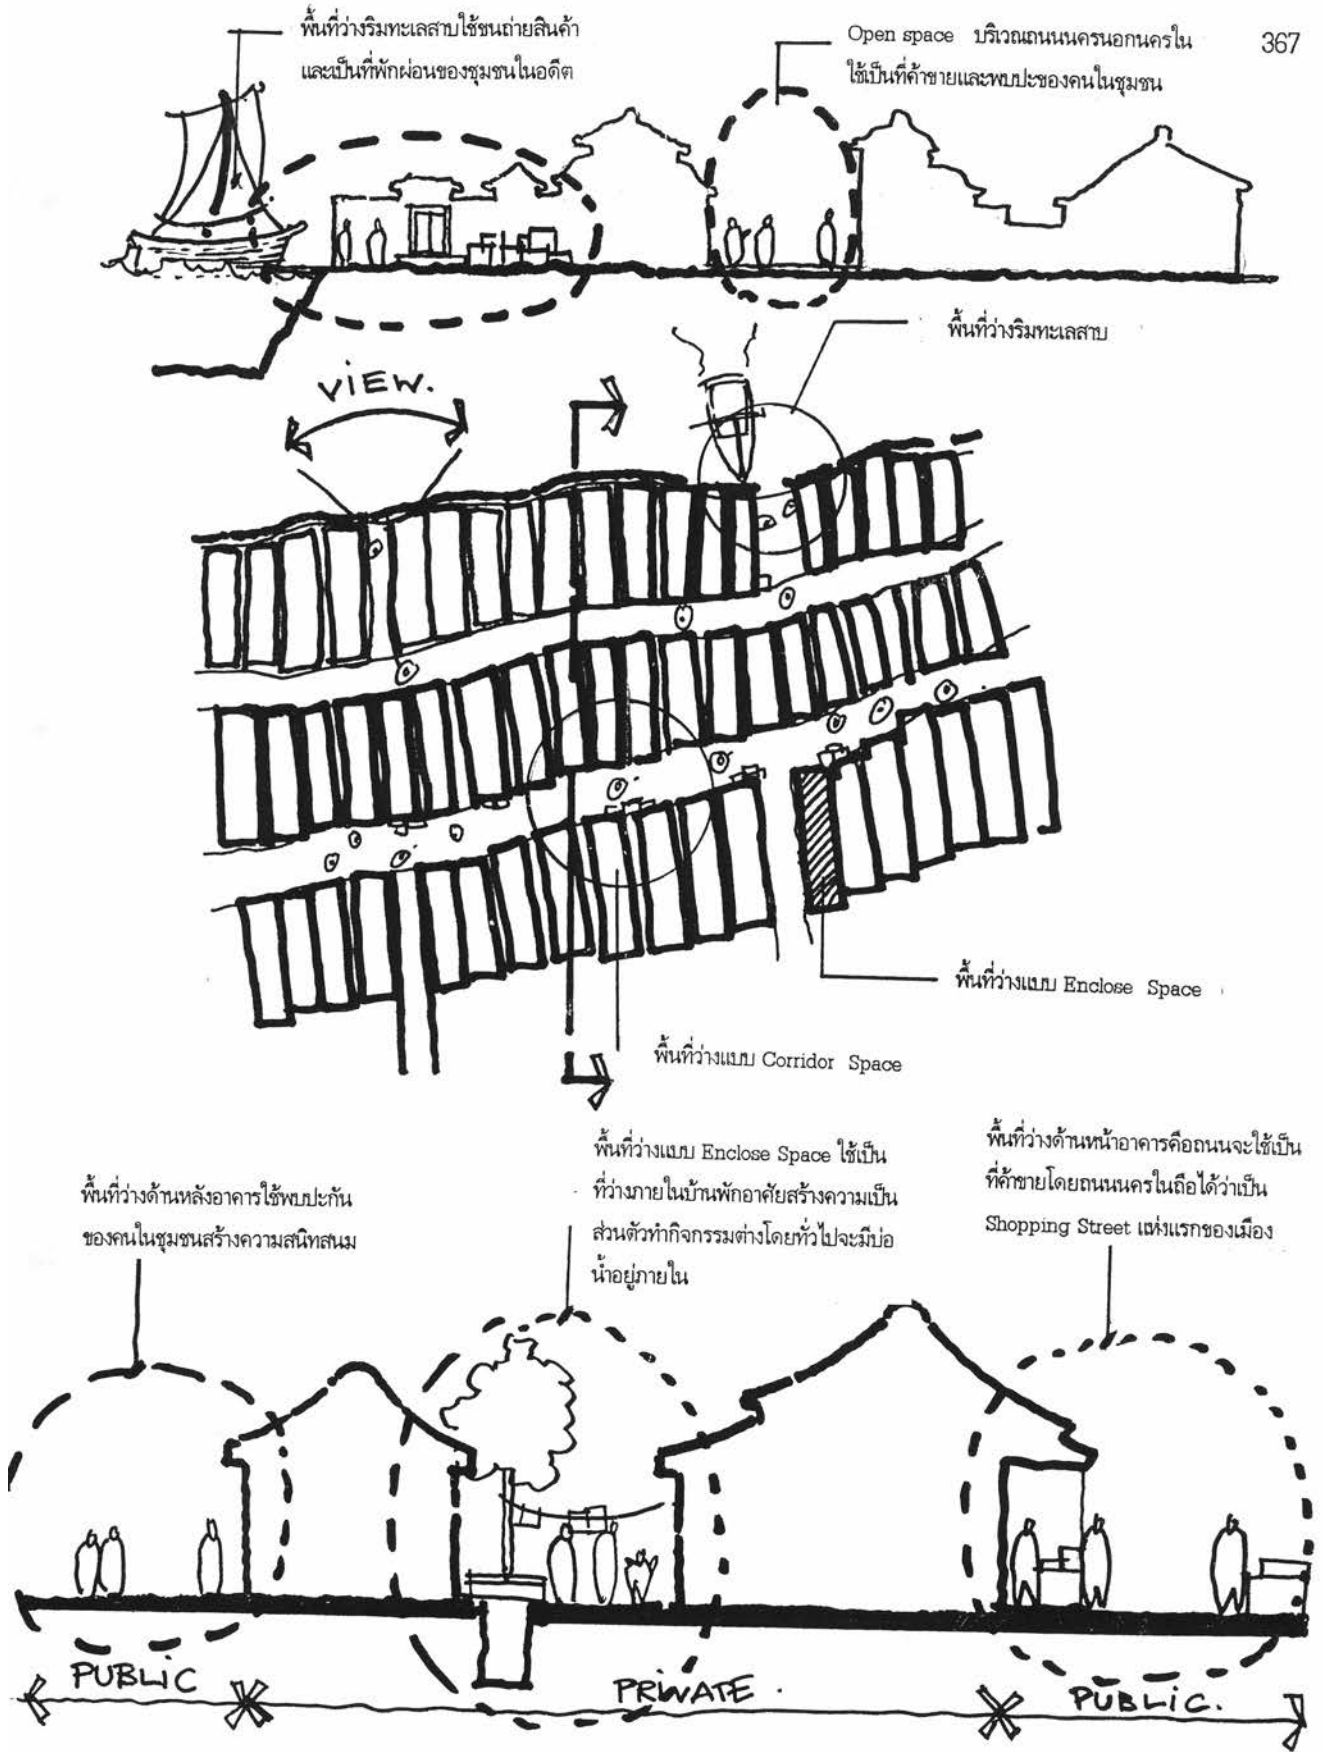 พื้นที่ว่างริมทะเลสาบใช้ขนถ่ายสินค้า
และเป็นที่พักผ่อนของชุมชนในอดีต
Open space บริเวณถนนนครนอกนครใน
ใช้เป็นที่ค้าขายและพบปะของคนในชุมชน
367
พื้นที่ว่างริมทะเลสาบ
VIEW.
พื้นที่ว่างแบบ Enclose Space
พื้นที่ว่างแบบ Corridor Space
พื้นที่ว่างด้านหลังอาคารใช้พบปะกัน
ของคนในชุมชนสร้างความสนิทสนม
พื้นที่ว่างแบบ Enclose Space ใช้เป็น
ที่ว่างภายในบ้านพักอาศัยสร้างความเป็น
ส่วนตัวทำกิจกรรมต่างโดยทั่วไปจะมีบ่อ
น้ำอยู่ภายใน
พื้นที่ว่างด้านหน้าอาคารคือถนนจะใช้เป็น
ที่ค้าขายโดยถนนนครในถือได้ว่าเป็น
Shopping Street แห่งแรกของเมือง
PUBLIC
PRIVATE.
PUBLIC.